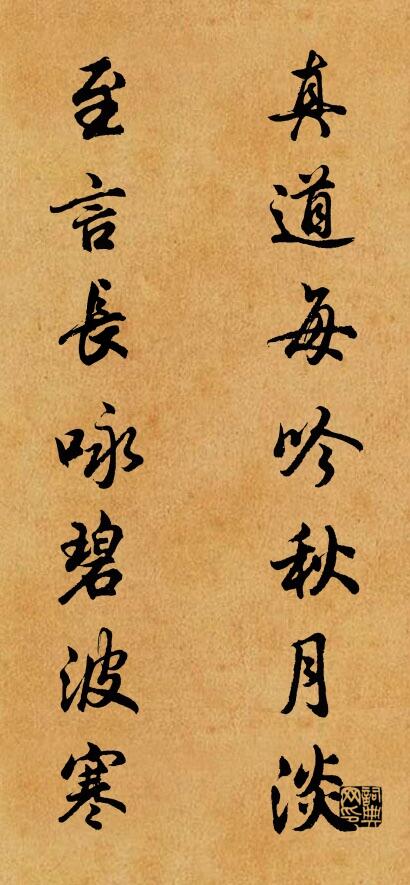 真道每吟秋月淡
至言長咏碧波寒
詞典网印